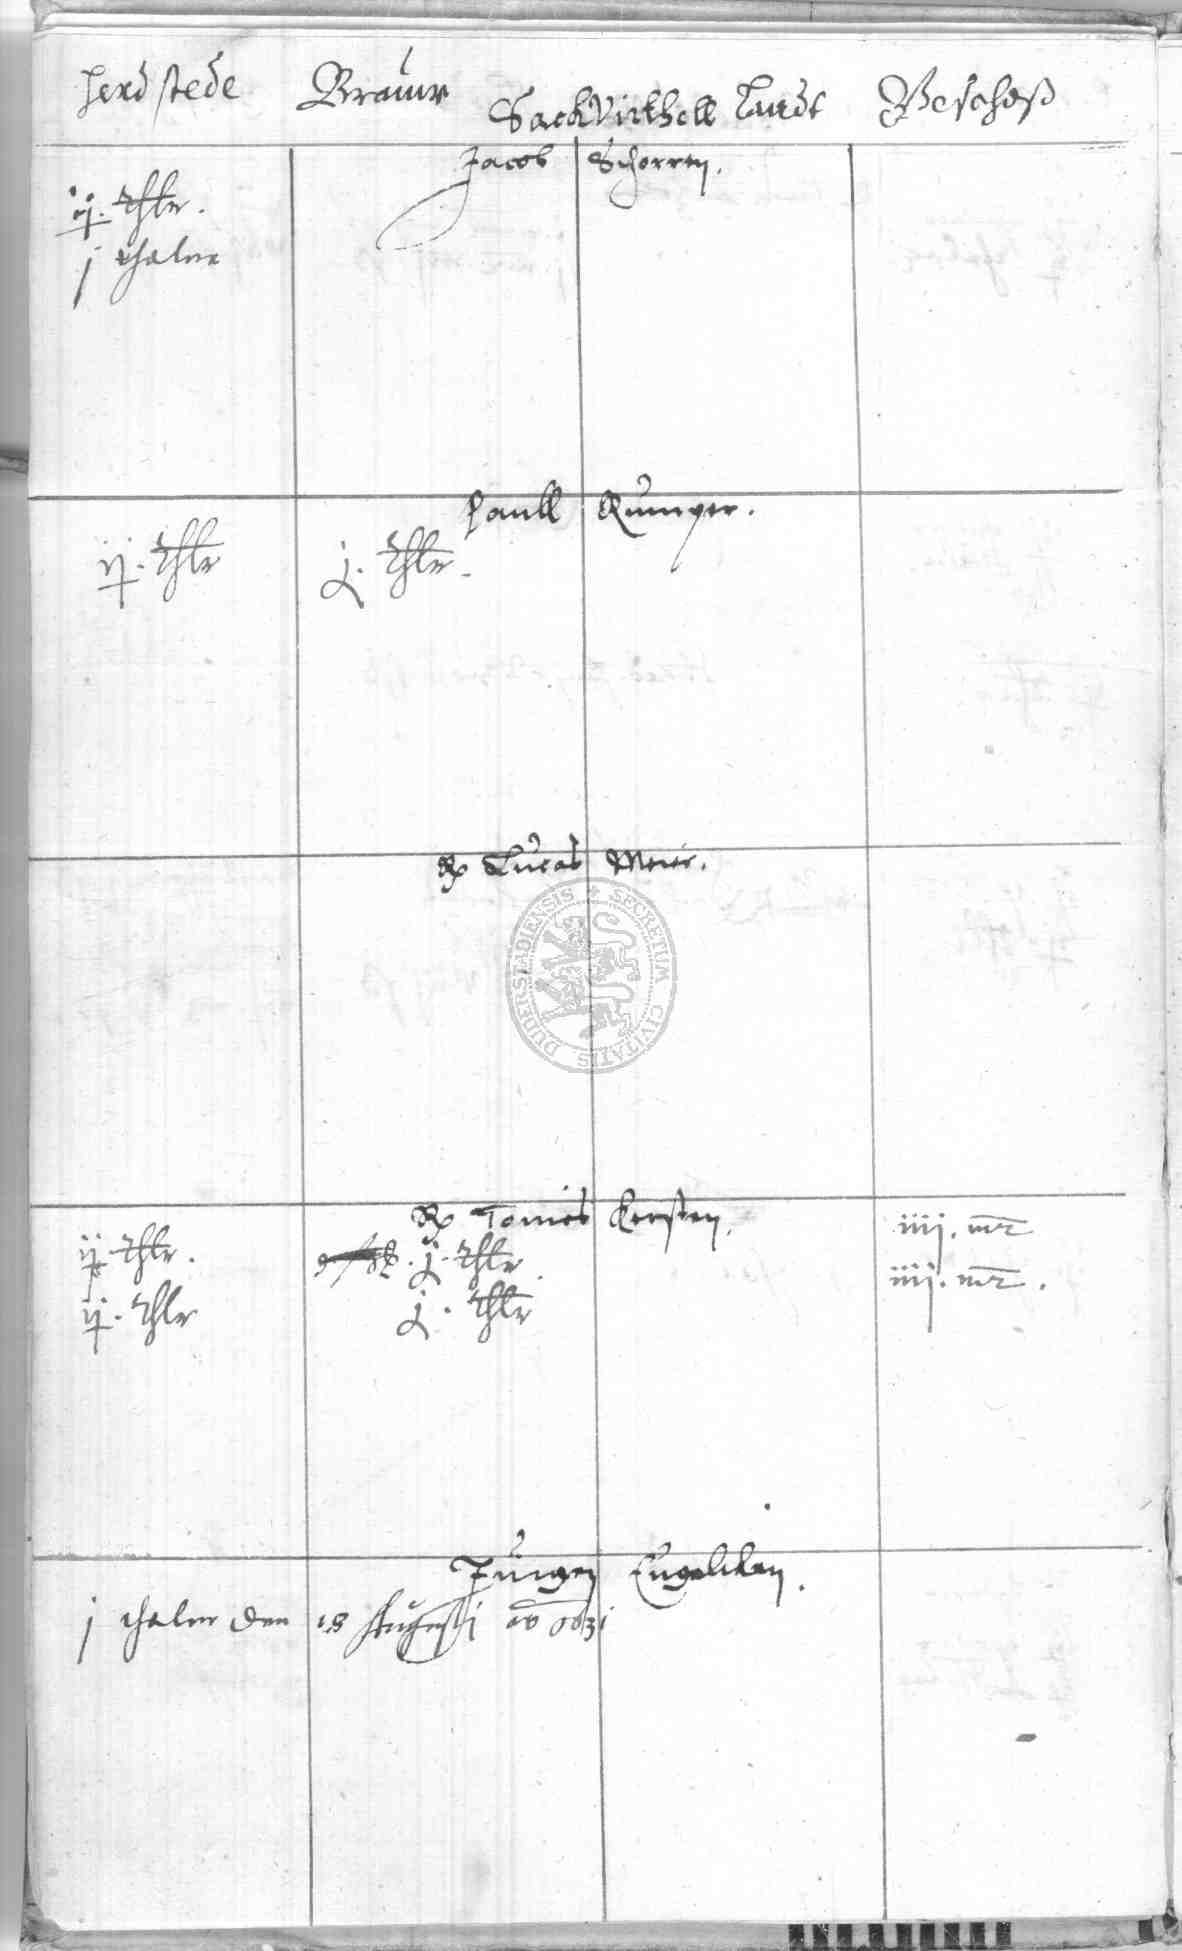 Herdstede Brauwe SackVirthell Landt Geschoß
Jacob Schorren.
ij. thlr.
j thaler
Paull
ij. thlr j. thlr.
Lucas Meier.
SECRETUM CIVITATIS DUDERSTADIENSIS
Tonies Kersten.
ij. thlr. j. thlr. iiij. mr
ij. thlr j. thlr iiij. mr.
Jurgen Engelken.
j thaler den 18 Augusti